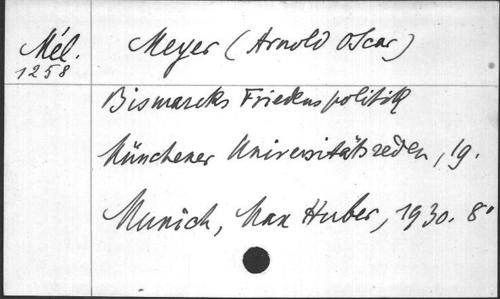 Mél. Meyer (Arnold Oscar)
1258
Bismarcks Friedenspolitik
Münchener Universitätsreden, 19.
Munich, Max Hueber, 1930. 8°